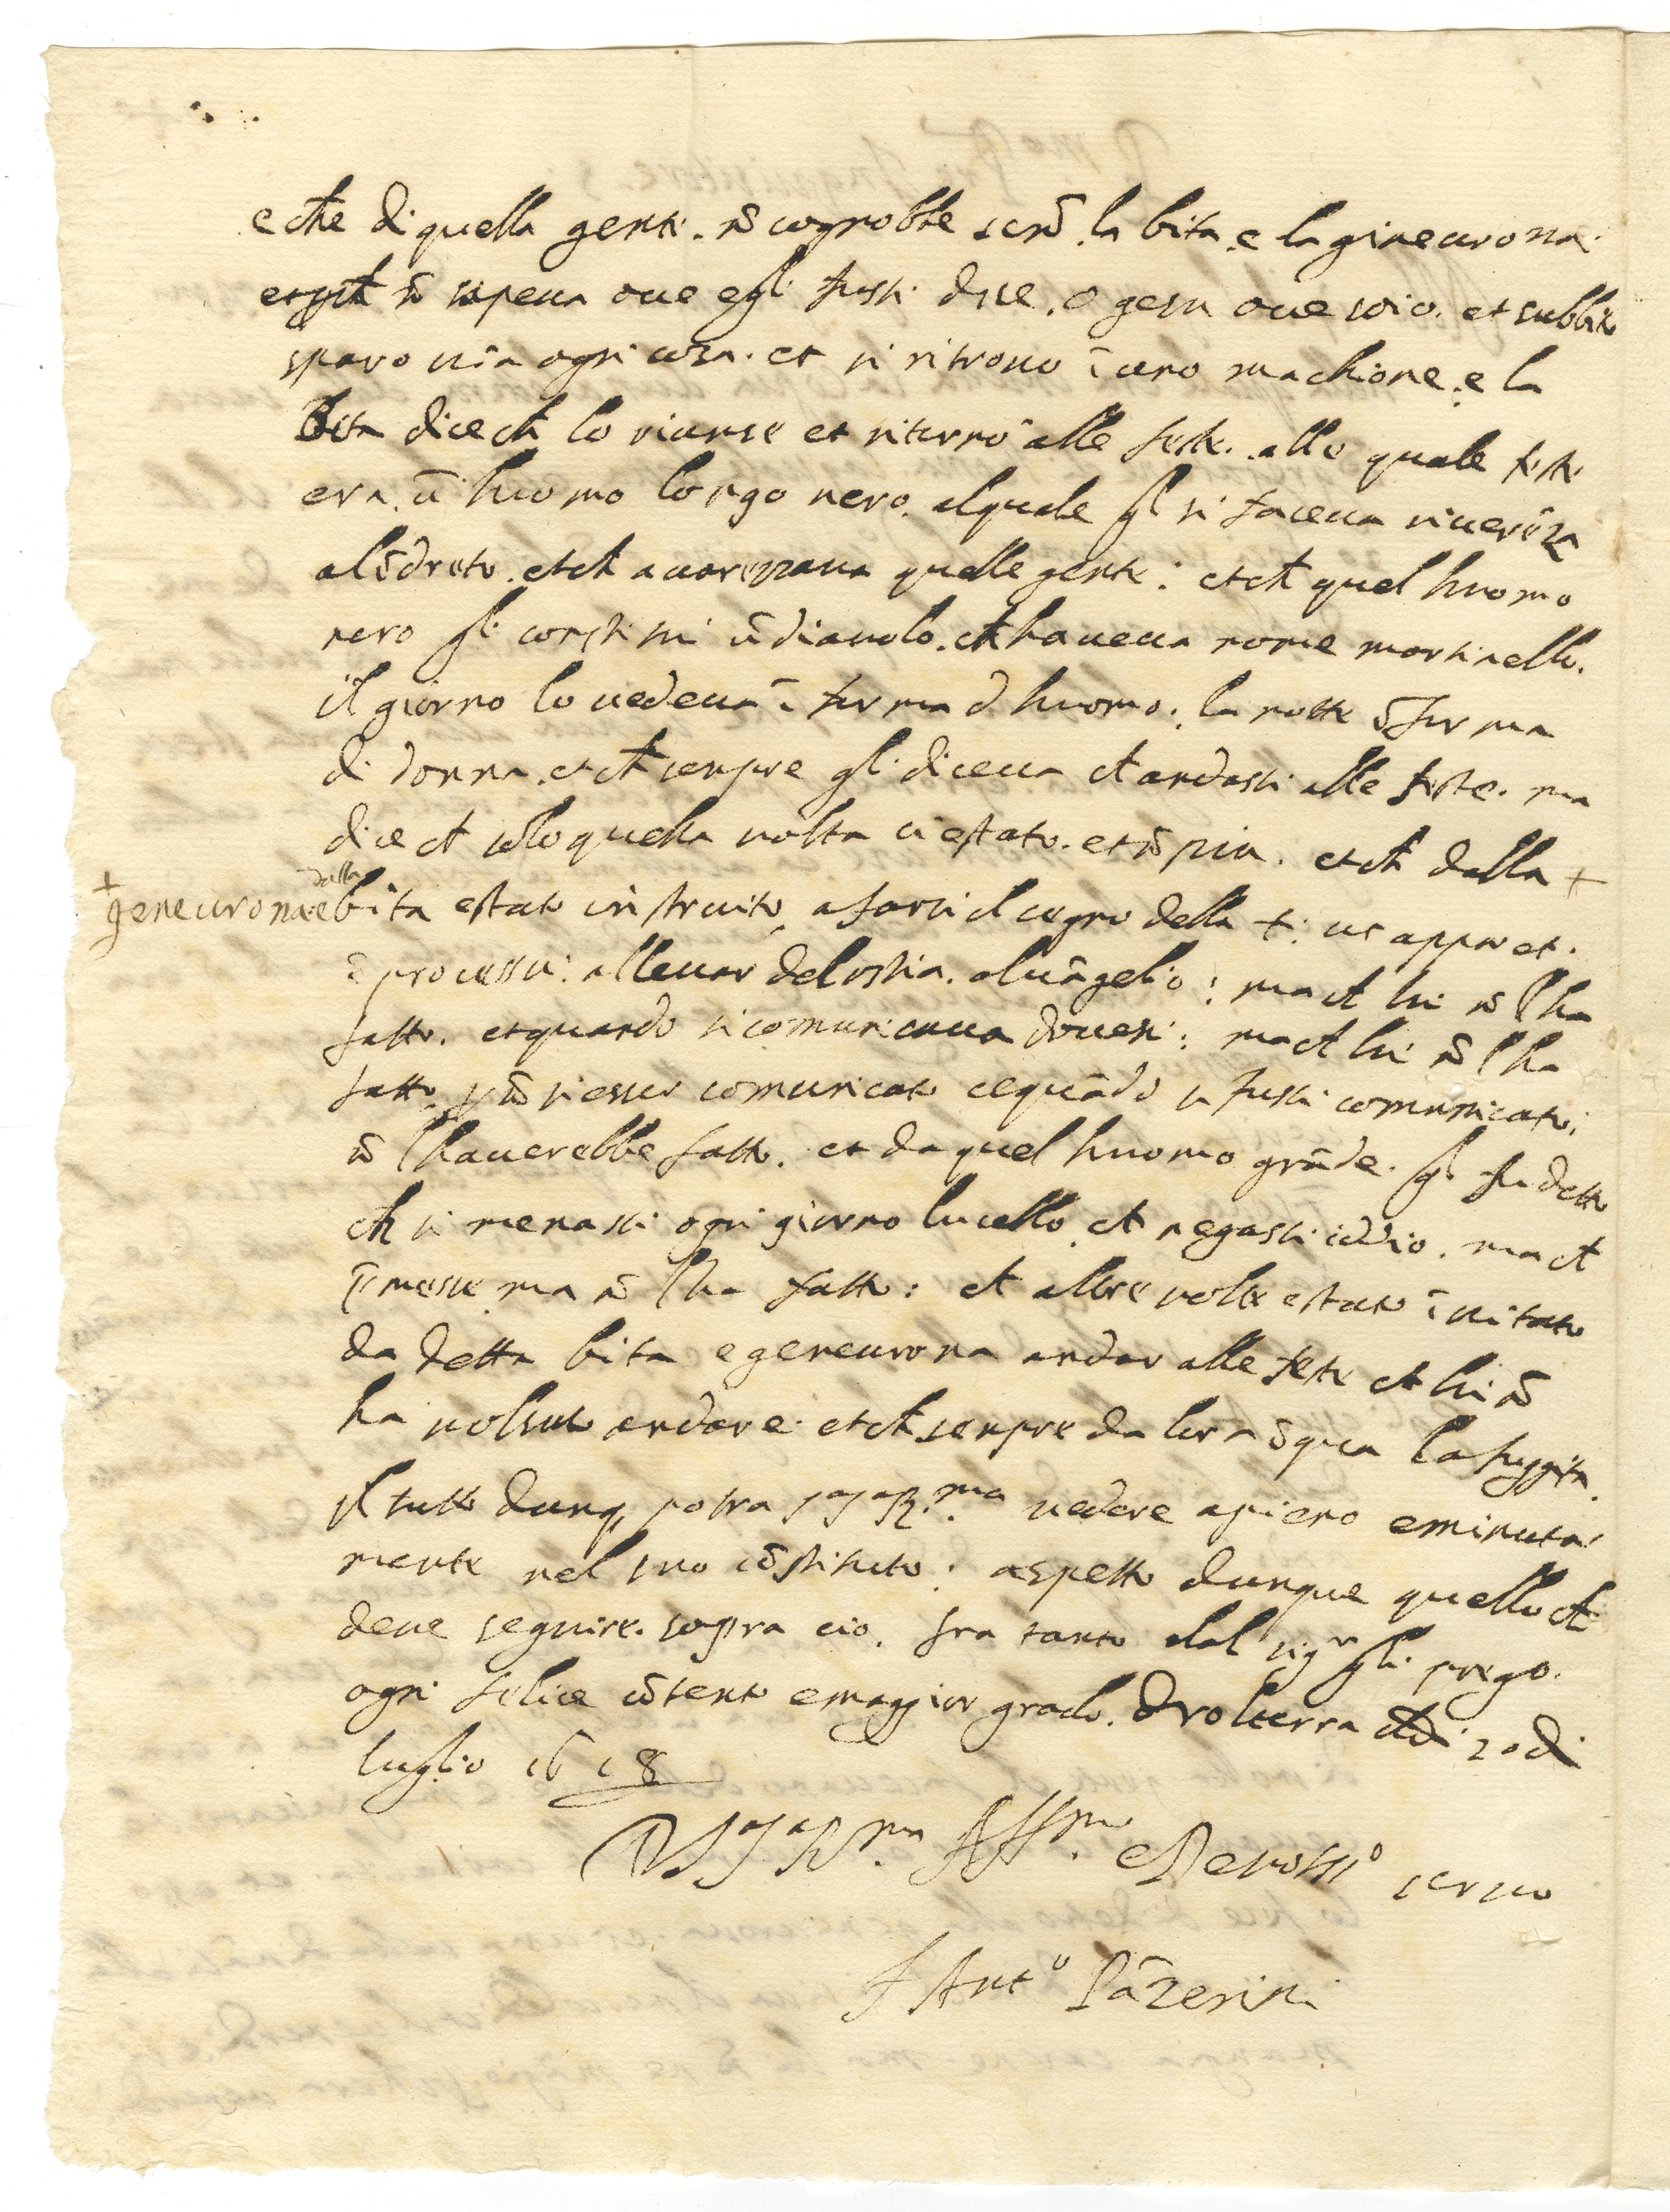 e che di quella gente. nõ cognobbe senõ. la bita. e la gineurona.
et pch nõ sapeua oue egli fussi disse. o gesu oue soio. et subbito
sparo uia ogni cosa. et si ritrouo ĩ uno machione. e la
Bita dice ch lo ricurse et ritornò alle feste. alle quale feste
era. ũ huomo longo nero. al quale gli si faceua riuerẽza
alĩdreto. et ch acarezzaua quelle gente: et ch quel huomo
nero gli constitui ũ diauolo. ch haueua nome martinello.
il giorno lo uedeua ĩ forma d huomo. la notte ĩ forma
di donna. et ch sempre gli diceua ch andassi alle feste. ma
dice ch solo quella uolta ci e stato. et nõ piu. et ch dalla +
+ geneurona e dalla bita e stato instruito a farsi il segno della +. ut apparet.
ĩ processu: alleuar del ostia. al uãgelio: ma ch lui nõ l ha
fatto. et quando si comunicaua douessi: ma ch lui nõ l ha
fatto. p nõ si esser comunicato e quãdo si fussi comunicato:
nõ l hauerebbe fatto. et da quel huomo grãde. gli fu detto
ch si menassi ogni giorno lucello. ch negassi iddio. ma ch
ĩ messe ma nõ l ha fatto: ch altre uolte e stato ĩuitato
da detta bita e geneurona andar alle feste ch lui nõ
ha uolsuto andare. et ch sempre da lora ĩ qua la fuggita.
Il tutto dunq potra S. S. R.ma uedere a pieno e minuta
mente nel suo cõstituto: aspetto dunque quello ch
deue seguire. sopra cio. fra tanto dal sigr gli prego.
ogni felice cõtento e maggior grado. di volterra adi 20 di
luglio 1618
D V S. R.ma Aff.mo e Deuotiss.o seruo
f Ant.o Pãzerini